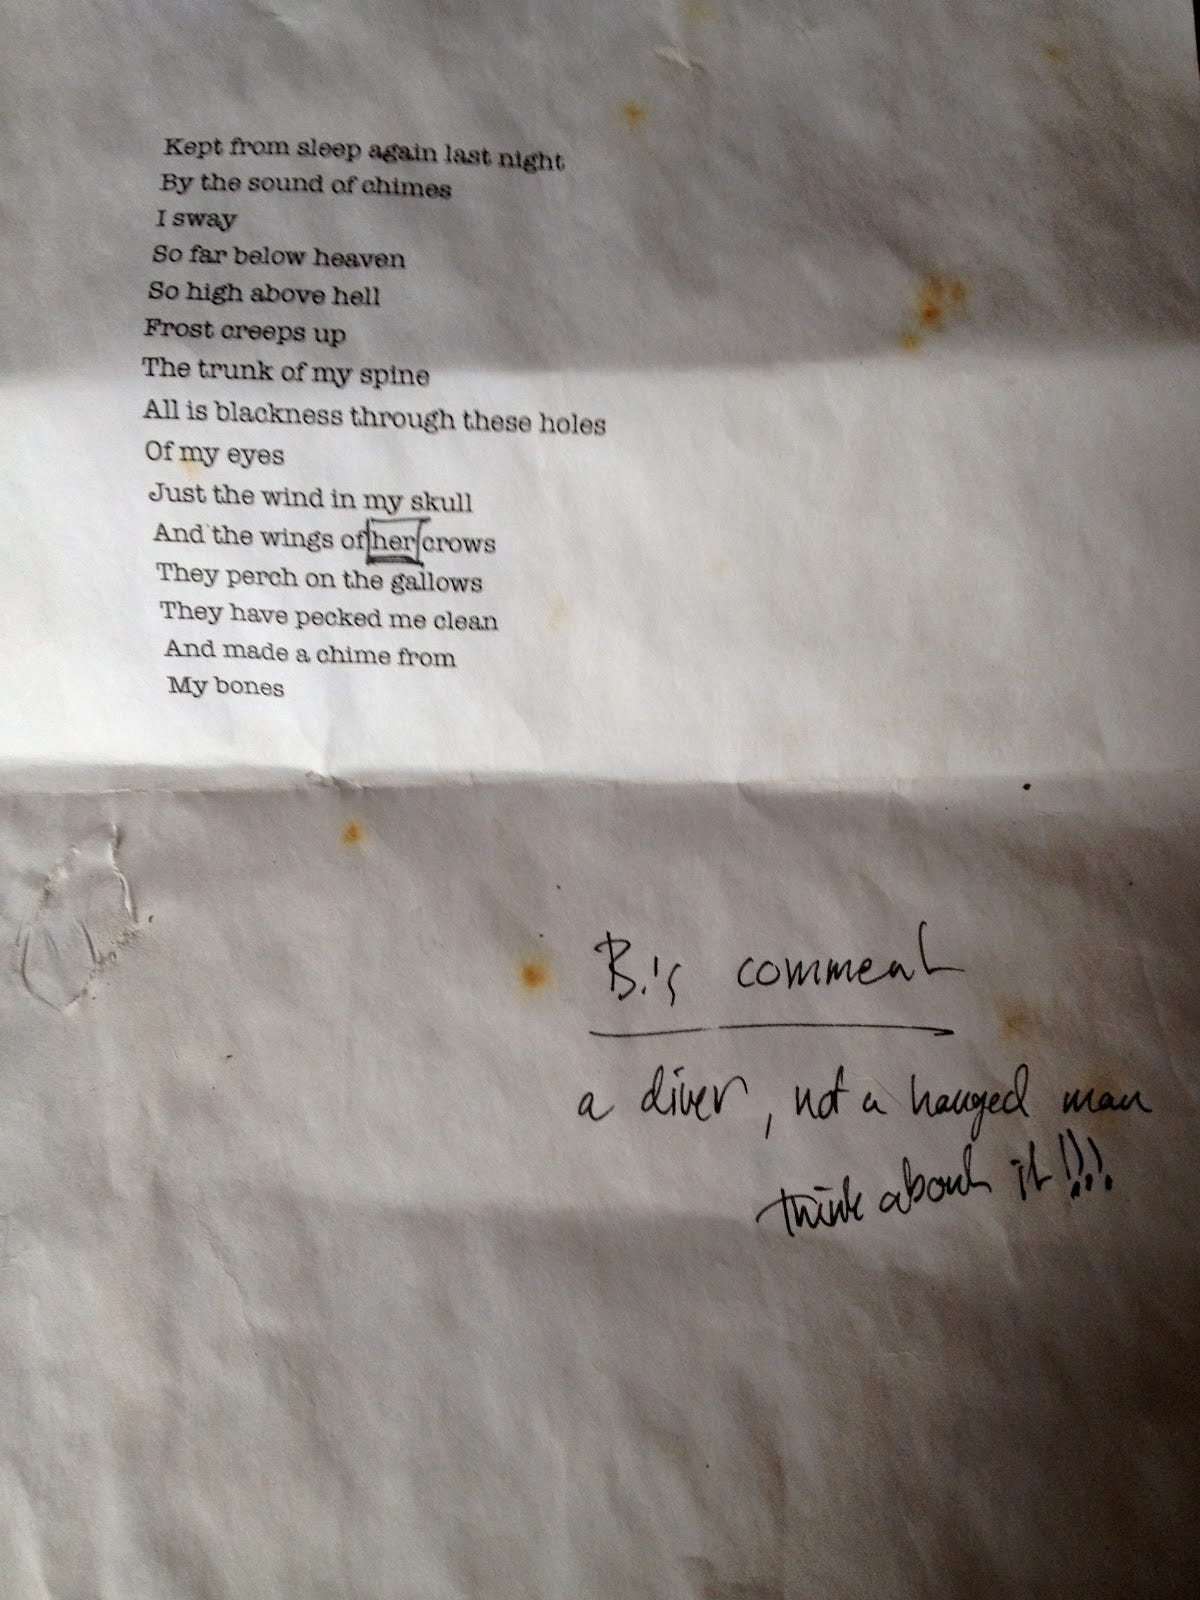 Kept from sleep again last night
By the sound of chimes
I sway
So far below heaven
So high above hell
Frost creeps up
The trunk of my spine
All is blackness through these holes
Of my eyes
Just the wind in my skull
And the wings of her crows
They perch on the gallows
They have pecked me clean
And made a chime from
My bones
B.'s comment
a diver, not a hanged man
think about it!!!